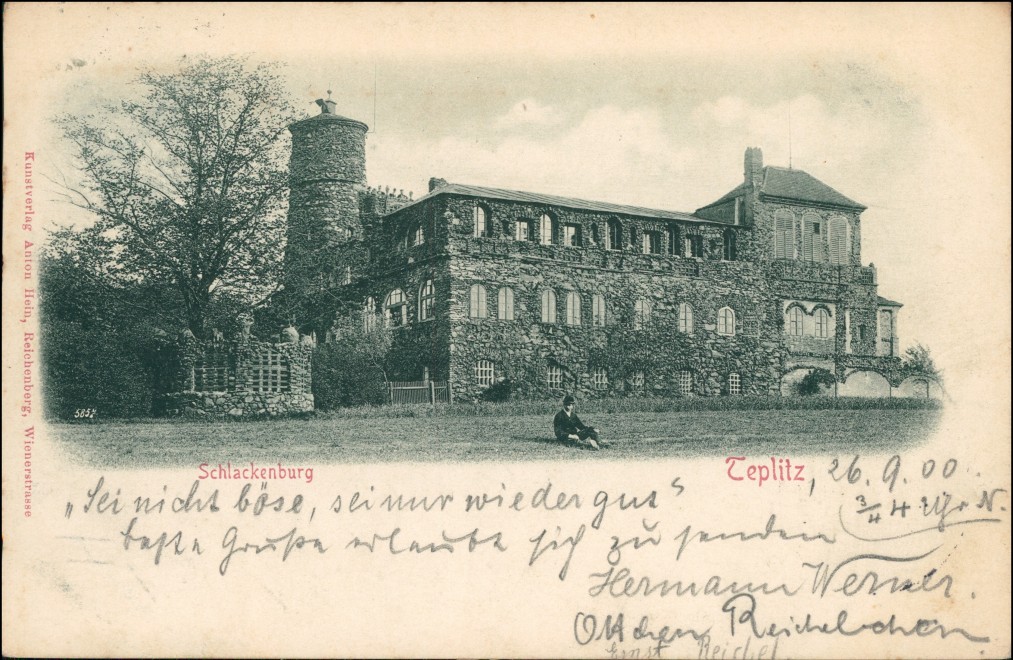 Kunstverlag Anton Hein, Reichenberg, Wienerstrasse
5857
Schlackenburg
Teplitz, 26.9.00
3/4 4 Uhr N.
„Sei nicht böse, sei nur wieder gut“
beste Grüße erlaubt sich zu senden
Hermann Werner.
Ottchen Reichelchen
Ernst Reichel